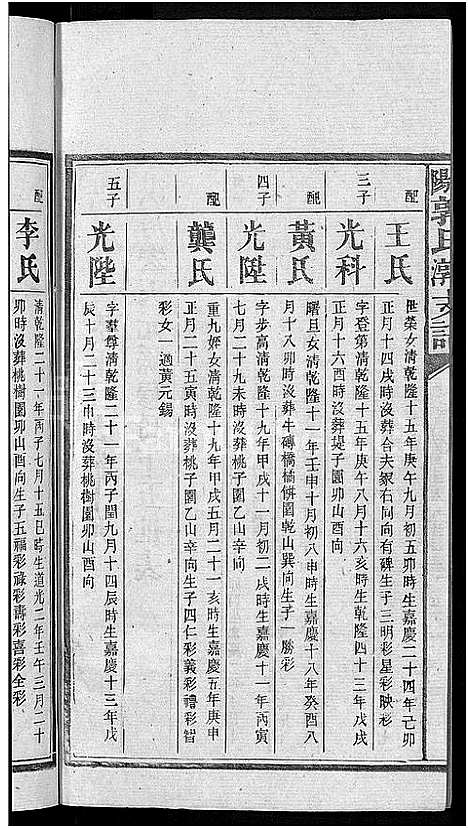 陽郭氏瀞支譜
配
王氏
世榮女清乾隆十五年庚午九月初五卯時生嘉慶二十四年己卯
正月十四戌時沒葬合夫冢右向有碑生子三明彩星彩映彩
三子
光科
字登第清乾隆十五年庚午八月十六亥時生乾隆四十三年戊戌
正月十六酉時沒葬堤子園卯山酉向
配
黃氏
曙旦女清乾隆十一年壬申十月初八申時生嘉慶十八年癸酉八
月十八卯時沒葬牛磚橋橫倂園乾山巽向生子一勝彩
四子
光陞
字步高清乾隆十九年甲戌十一月初二戌時生嘉慶十一年丙寅
七月二十九未時沒葬桃子園乙山辛向
配
龔氏
重九姪女清乾隆十九年甲戌五月二十一亥時生嘉慶五年庚申
正月二十五寅時沒葬桃子園乙山辛向生子四仁彩義彩禮彩智
彩女一適黃元錫
五子
光陛
字羣尊清乾隆二十一年丙子閏九月十四辰時生嘉慶十三年戊
辰十月二十三申時沒葬桃樹園卯山酉向
配
李氏
清乾隆二十一年丙子七月十五巳時生道光二年壬午三月二十
卯時沒葬桃樹園卯山酉向生子五福彩祿彩壽彩喜彩全彩